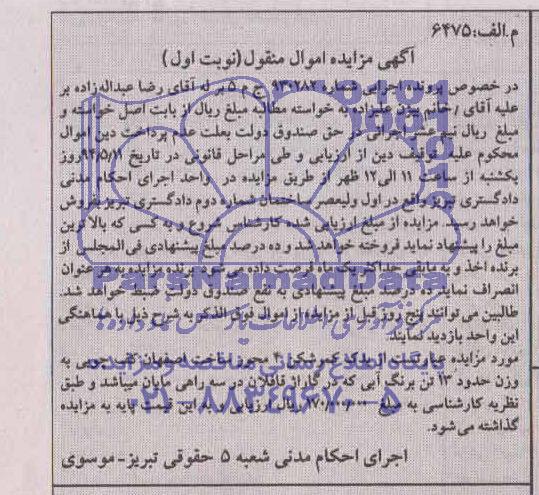 م.الف:۶۴۷۵
آگهی مزایده اموال منقول(نوبت اول)
در خصوص پرونده اجرایی شماره ۹۳۰۲۸۲ ج م ۵ بر له آقای رضا عبداله‌زاده بر
علیه آقای / خانم علیزاده به خواسته مطالبه مبلغ ریال از بابت اصل خواسته و
مبلغ ریال نیم عشر اجرائی در حق صندوق دولت بعلت عدم پرداخت دین اموال
محکوم علیه توقیف دین از ارزیابی و طی مراحل قانونی در تاریخ ۹۴/۵/۱۱ روز
یکشنبه از ساعت ۱۱ الی ۱۲ ظهر از طریق مزایده در واحد اجرای احکام مدنی
دادگستری تبریز واقع در اول ولیعصر ساختمان شماره دوم دادگستری تبریز بفروش
خواهد رسید. مزایده از مبلغ ارزیابی شده کارشناس شروع و به کسی که بالاترین
مبلغ را پیشنهاد نماید فروخته خواهد شد و ده درصد مبلغ پیشنهادی فی المجلس از
برنده اخذ و به مابقی حداکثر یک ماه فرصت داده می شود برنده مزایده به هر عنوان
انصراف نماید مبلغ پیشنهادی به نفع صندوق دولت ضبط خواهد شد.
طالبین می توانند پنج روز قبل از مزایده از اموال فوق الذکر به شرح ذیل با هماهنگی
این واحد بازدید نمایند.
مورد مزایده عبارتست از یدک کمرشکن ۴ محور ساخت اصفهان کف چوبی به
وزن حدود ۱۳ تن برنگ آبی که در گاراژ قافلان در سه راهی مایان میباشد و طبق
نظریه کارشناسی به مبلغ ریال ارزیابی و به این قیمت پایه به مزایده
گذاشته می شود.
اجرای احکام مدنی شعبه ۵ حقوقی تبریز-موسوی
ParsNamadData
پایگاه اطلاع رسانی مناقصه و مزایده
۰۲۱-۸۸۳۴۹۶۷۰-۵